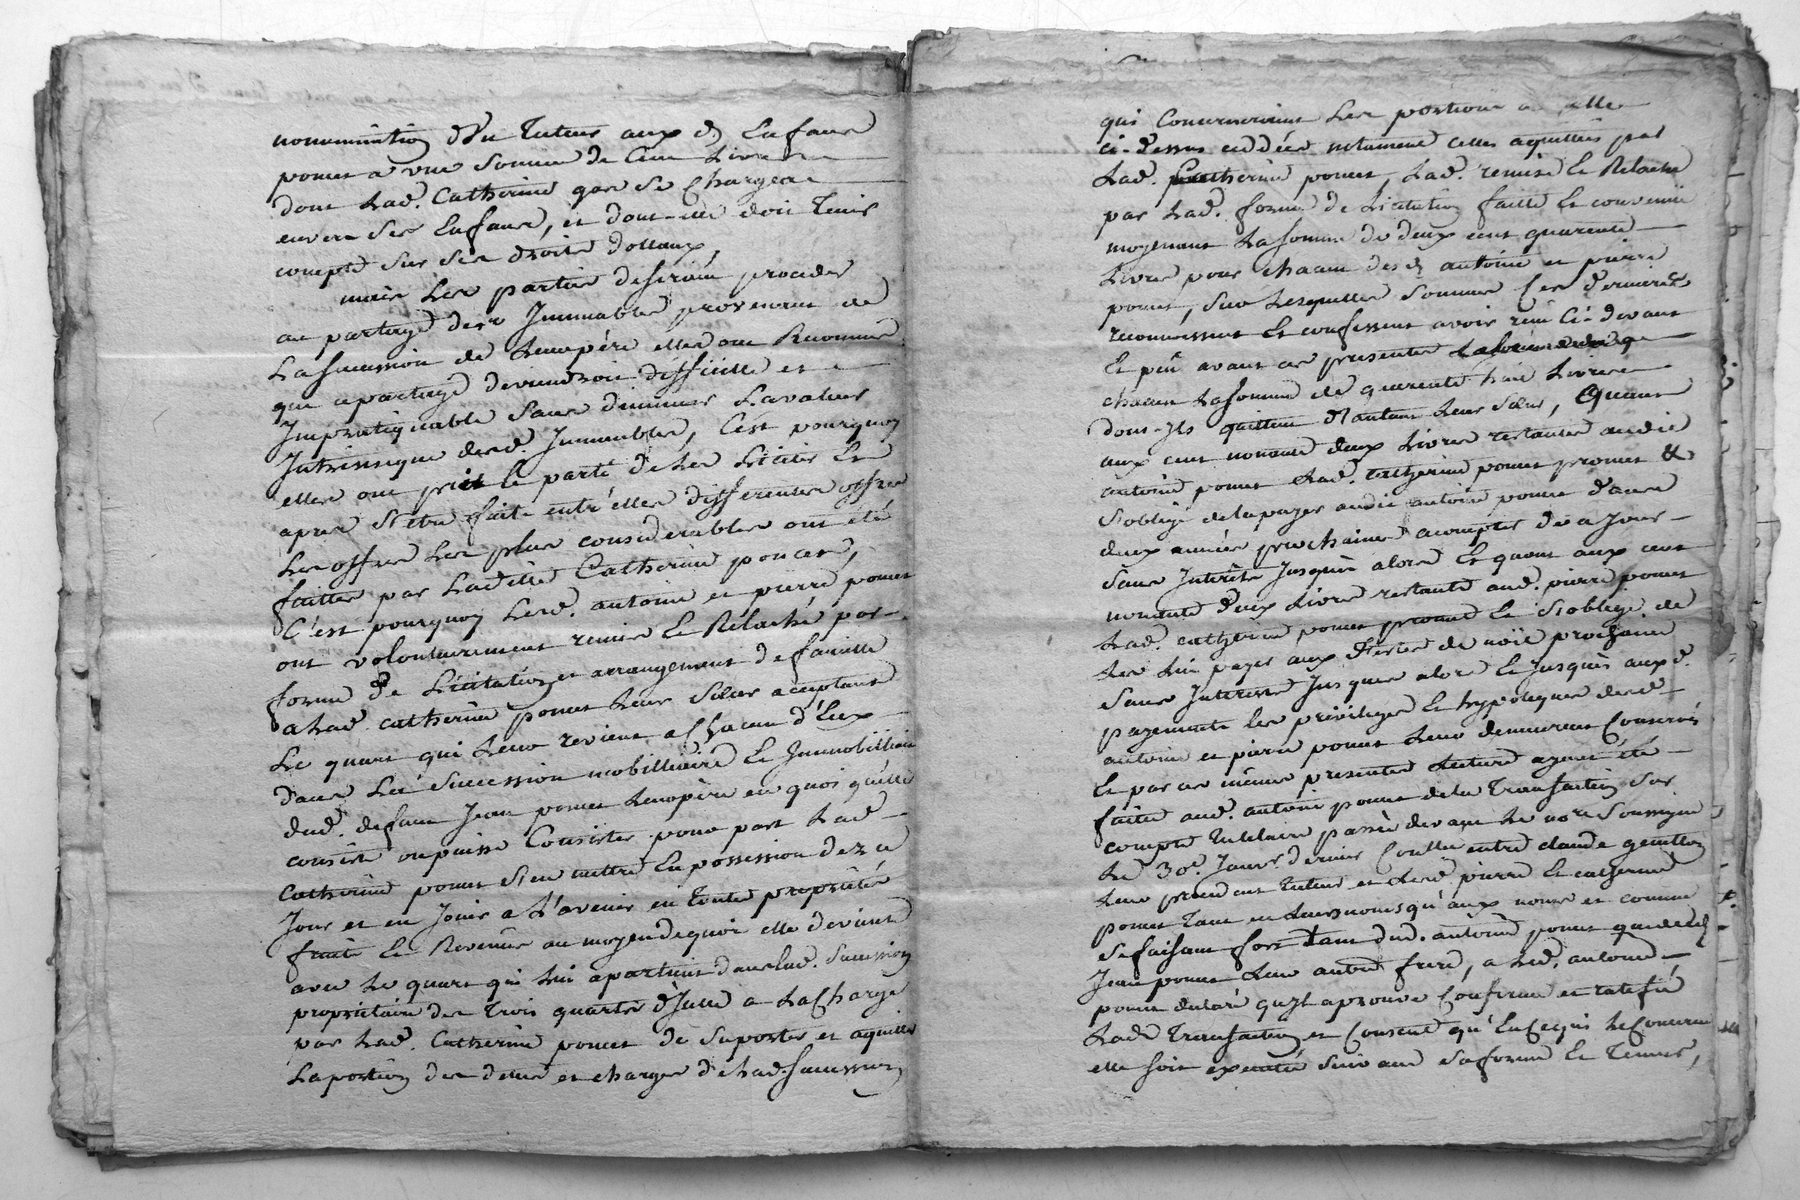 nommination d'un Tuteur aux d. Enfans
poncet a une somme de Cent Livres
dont Lad. Catherine poncet se Chargea
envers ses Enfans, et dont elle doit Tenir
compte sur ses droits dottaux,
mais Les parties desirant proceder
au partage des Immeubles provenant de
La succession de Leur père elles ont Reconnu
que ce partage deviendroit difficille et
Impratiquable sans diminuer La valeur
Intrinseque desd. Immeubles, C'est pourquoy
elles ont pris le parti de Les Liciter Et
apres s'etre fait entr'elles differentes offres
Les offres Les plus considerables ont été
faittes par Ladite Catherine poncet,
C'est pourquoy Lesd. antoine et pierre poncet
ont volontairement remis Et Relaché par
forme de Licitation et arrangement de famille
a Lad. Catherine poncet Leur Sœur aceptant
Le quart qui Leur revient a Chacun d'Eux
dans La Succession mobilliaire Et Immobilliaire
dud. defunt Jean poncet Leur père en quoi qu'elle
consiste ou puisse Consister pour par Lad.
Catherine poncet s'en mettre En possession dez ce
Jour et en Jouir a L'avenir en toute propriété
fruits Et Revenus au moyen de quoi elle devient
avec Le quart qui Lui apartient dans Lad. Succession
propriétaire des Trois quarts d'Icelle a La Charge
par Lad. Catherine poncet de Suporter et aquitter
La portion des dettes et charges de Lad. Succession
qui Concernoient Les portions a elle
ci-dessus cedées notament celles aquittées par
Lad. Catherine poncet, Lad. remise Et Relache
par Lad. forme de Licitation faitte Et convenue
moyenant La somme de deux cent quarente
Livres pour chacun desd. antoine et pierre
poncet, sur Lesquelles sommes Ces derniers
reconnoissent Et confessent avoir reçu Ci-devant
Et peu avant ces presentes
chacun La somme de quarente huit Livres
dont-Ils quittent d'autant Leur Sœur, Quant
aux cent nonante deux Livres restantes audit
antoine poncet Lad. Catherine poncet promet &
s'oblige de la payer audit antoine poncet dans
deux années prochaines acompter de ce Jour
sans Interêts Jusqu'a alors Et quant aux cent
nonante deux Livres restante aud. pierre poncet
Lad. catherine poncet promet Et s'oblige de
Les Lui payer aux Festes de noël prochaines
sans Interests Jusques alors Et Jusques auxd.
payements les privileges Et hypoteques desd.
antoine et pierre poncet Leur demeurent Conservés
Et par ces mêmes presentes Lecture ayant été
faitte aud. antoine poncet de la Transaction sur
compte Tutelaire passée devant Le no.re Soussigné
Le 30.e Janv.r dernier Conclu entre claude
Leur précedent Tuteur et Lesd. pierre Et catherine
poncet Tant en Leurs noms qu'aux noms et comme
se faisant fort tant dud. antoine poncet que dud.
Jean poncet Leur autre frere, a Led. antoine
poncet declaré qu'Il aprouve Confirme et ratifie
Lad. Transaction et Consent qu'En ce qui Le Concerne
elle soit executée suivant sa forme Et Teneur,